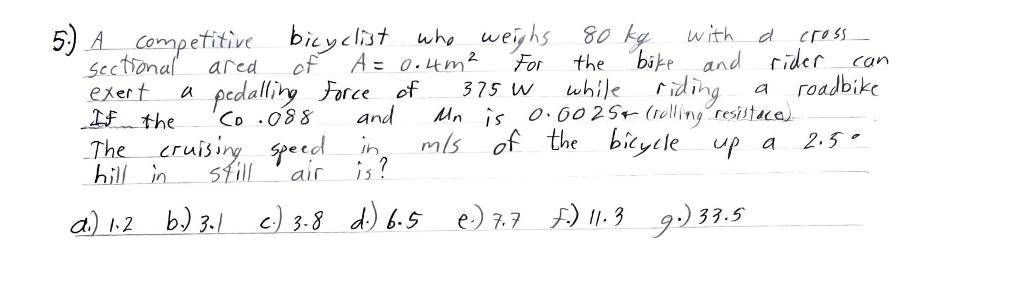 5.) A competitive bicyclist who weighs 80 kg with a cross
sectional area of A = 0.4m² For the bike and rider can
exert a pedalling force of 375 W while riding a roadbike
If the CD .088 and Mn is 0.0025 (rolling resistace)
The cruising speed in m/s of the bicycle up a 2.5°
hill in still air is?
a.) 1.2 b.) 3.1 c.) 3.8 d.) 6.5 e.) 7.7 f.) 11.3 g.) 33.5